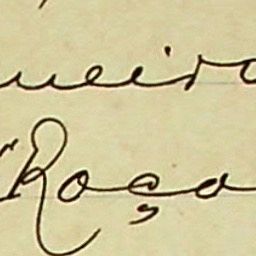 ueiro
Roça